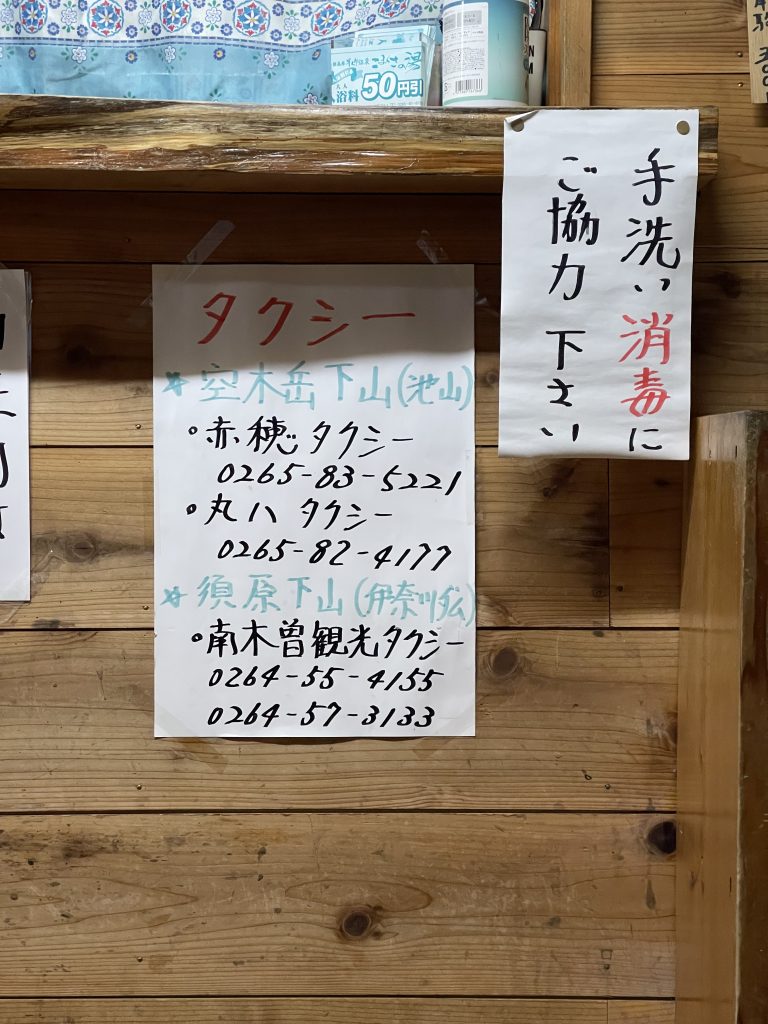 こまくさの湯
50円引
手洗い消毒に
ご協力下さい
タクシー
空木岳下山(池山)
赤穂タクシー
0265-83-5221
丸八タクシー
0265-82-4177
須原下山(伊奈川ダム)
南木曽観光タクシー
0264-55-4155
0264-57-3133